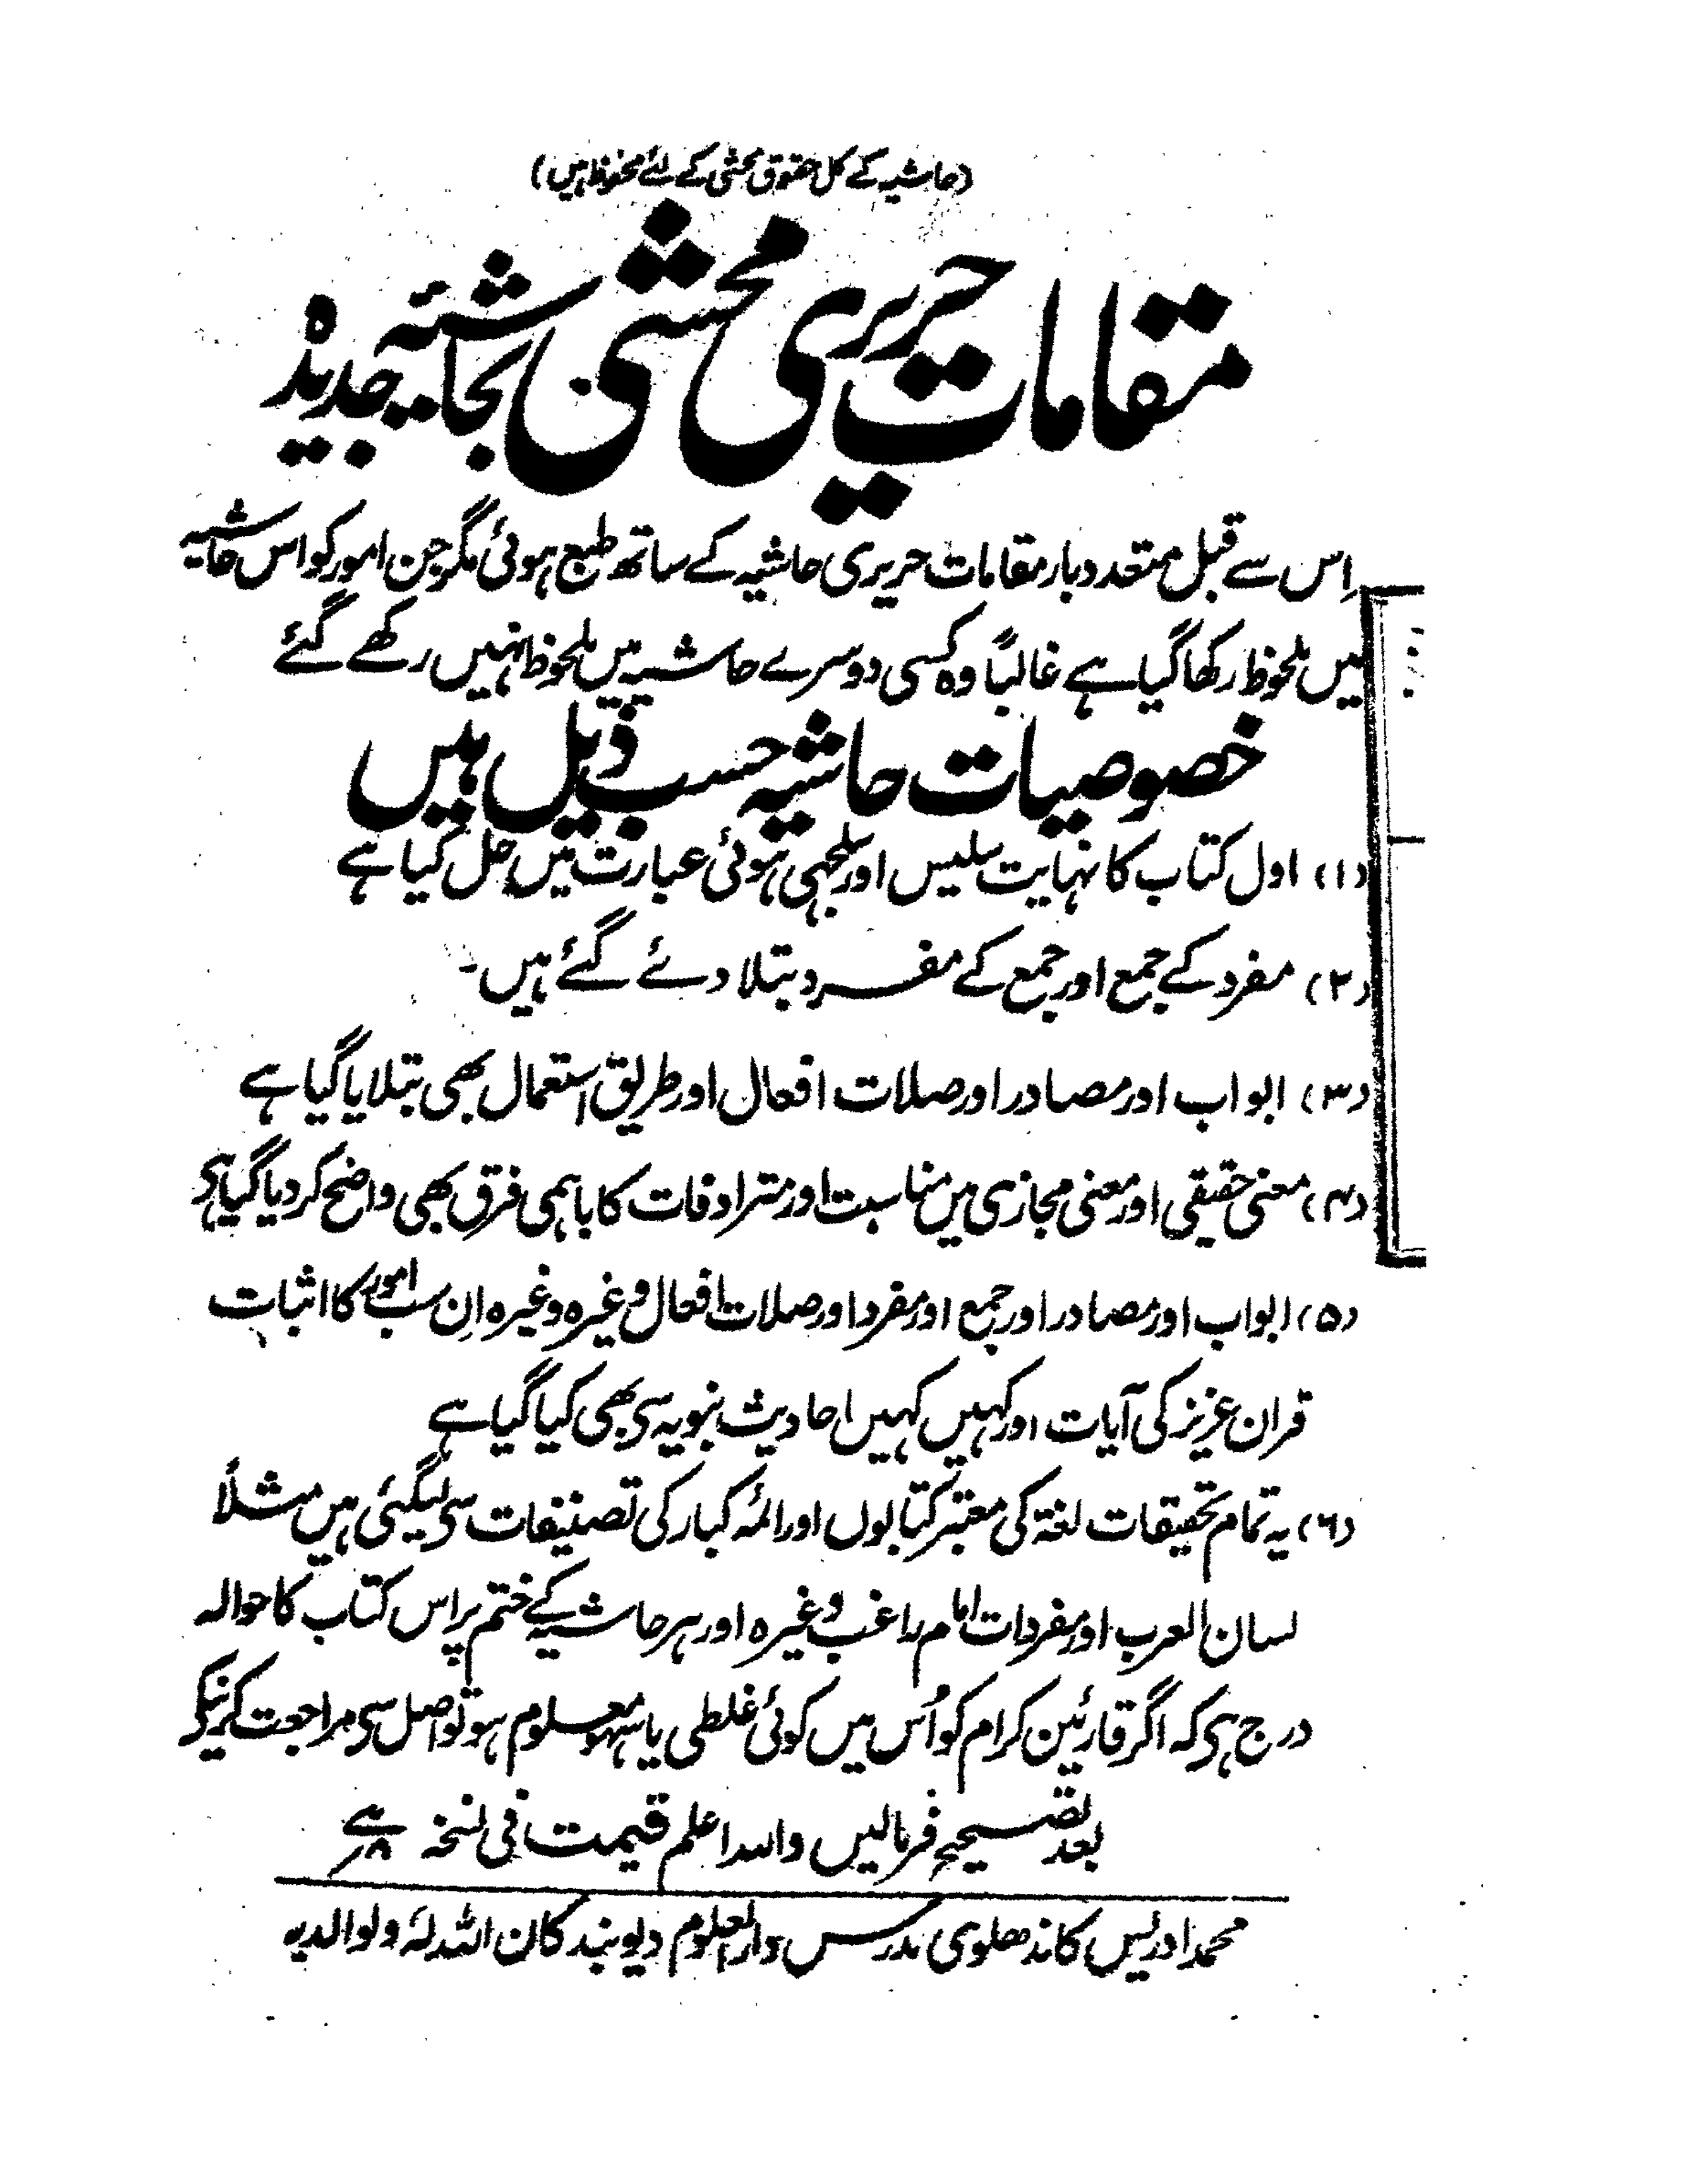 (حاشیہ کے کل حقوق محشی کے لئے محفوظ ہیں)
مقامات حریری محشیٰ بحاشیۂ جدیدہ
اِس سے قبل متعدد بار مقامات حریری حاشیہ کے ساتھ طبع ہوئی مگر جن امور کو اس حاشیہ
میں ملحوظ رکھا گیا ہے غالباً وہ کسی دوسرے حاشیہ میں ملحوظ نہیں رکھے گئے
خصوصیات حاشیہ حسب ذیل ہیں
(۱) اول کتاب کا نہایت سلیس اور سلجھی ہوئی عبارت میں حل کیا ہے
(۲) مفرد کے جمع اور جمع کے مفرد بتلا دئے گئے ہیں۔
(۳) ابواب اور مصادر اور صلات افعال اور طریق استعمال بھی بتلایا گیا ہے
(۴) معنی حقیقی اور معنی مجازی میں مناسبت اور مترادفات کا باہمی فرق بھی واضح کر دیا گیا ہی
(۵) ابواب اور مصادر اور جمع اور مفرد اور صلات افعال وغیرہ وغیرہ اِن سب امور کا اثبات
قران عزیز کی آیات اور کہیں کہیں احادیث نبویہ سی بھی کیا گیا ہے
(۶) یہ تمام تحقیقات لغۃ کی معتبر کتابوں اور ائمہ کبار کی تصنیفات سی لیگئی ہیں مثلاً
لسان العرب اور مفردات امام راغب وغیرہ اور ہر حاشیہ کے ختم پر اس کتاب کا حوالہ
درج ہی کہ اگر قارئین کرام کو اُس میں کوئی غلطی یا سہو معلوم ہو تو اصل سی مراجعت کرنیکے
بعد تصحیح فرمالیں واللہ اعلم قیمت فی نسخہ
محمد ادریس کاندھلوی مدرس دار العلوم دیوبند کان اللہ لہٗ ولوالدیہ